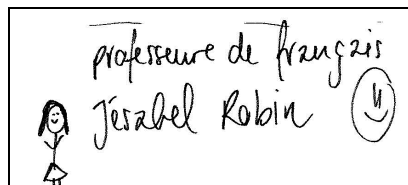 professeure de français
Jésabel Robin